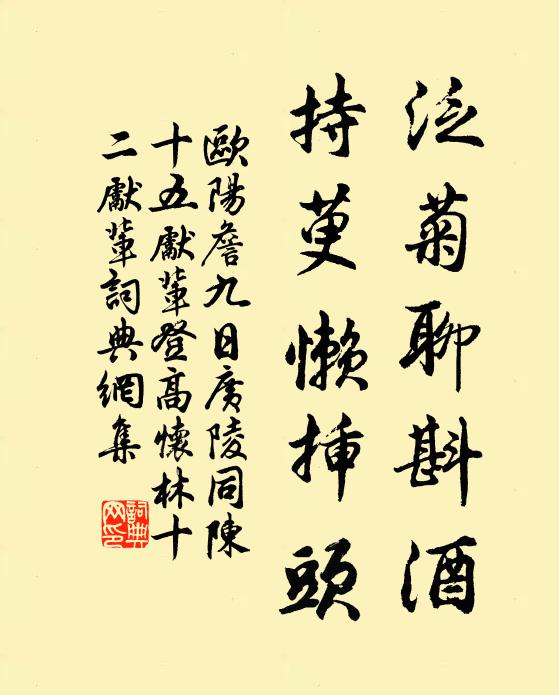 泛菊聊斟酒
持萸懒揷頭
歐陽詹九日廣陵同陳
十五獻輩登高懷林十
二獻輩詞典網集
詞典
网印